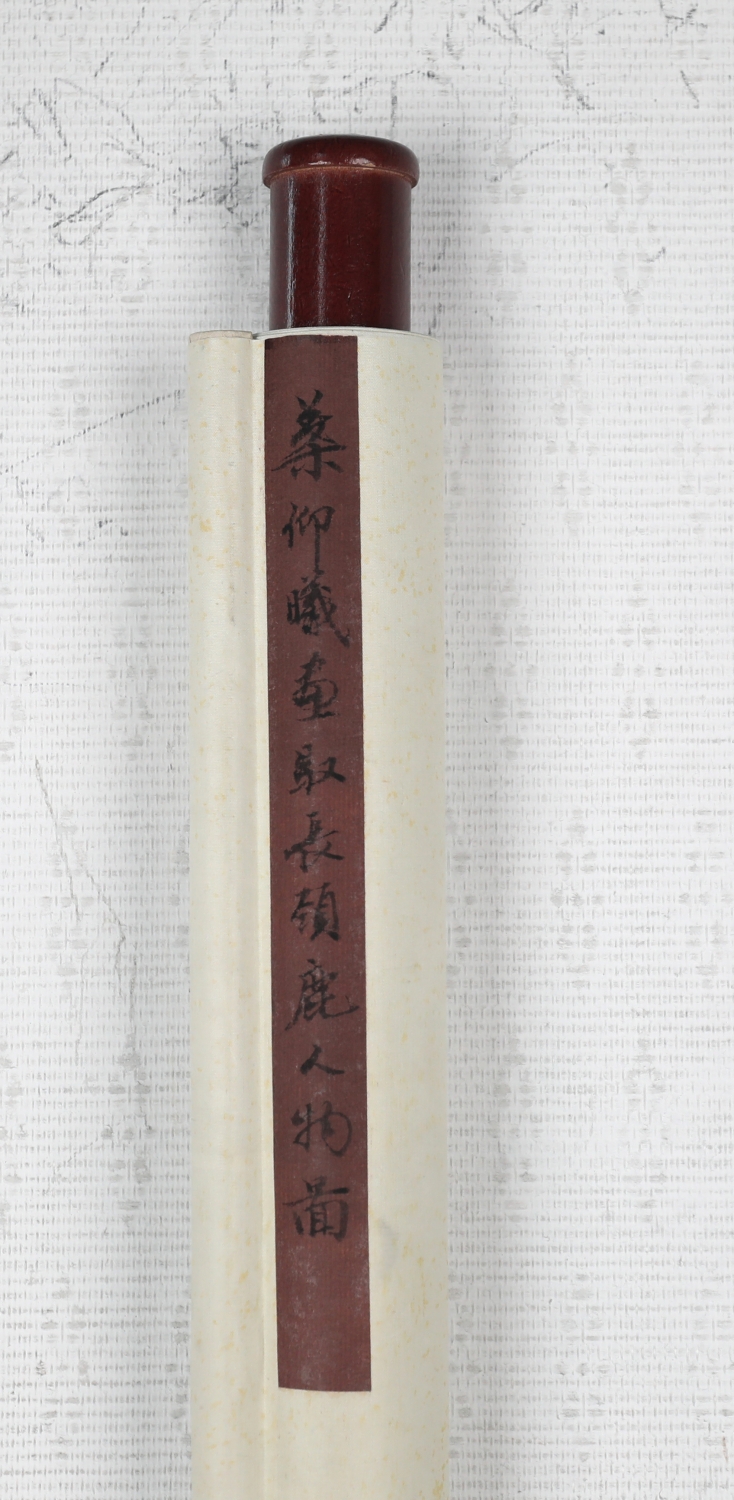 蔡仰曦畫馭長頸鹿人物啚